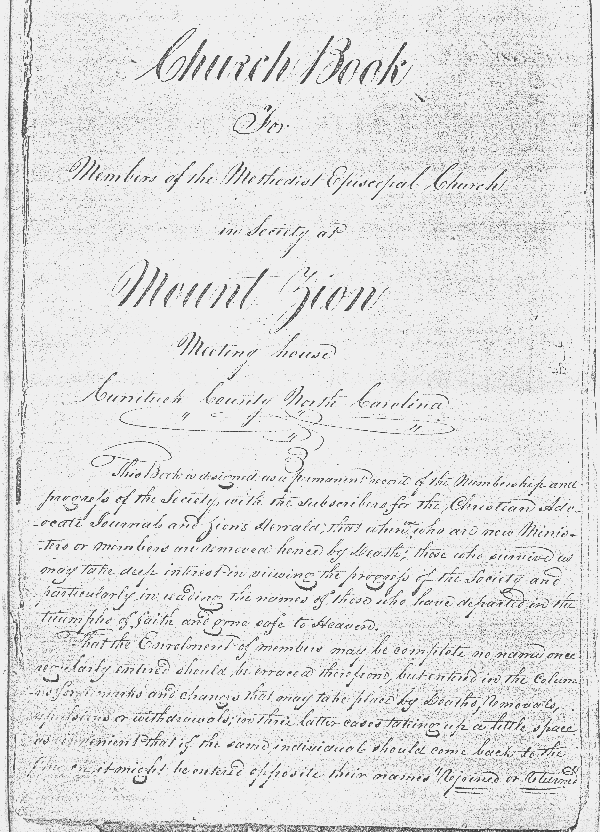 Church Book
For
Members of the Methodist Episcopal Church
in Society at
Mount Zion
Meeting house
Currituck County North Carolina
This Book is designed as a permanent record of the Membership and
progress of the Society, with the subscribers for the Christian Advo-
cate Journal and Zion's Herrald; that when who are now Minis-
ters or members are removed hence by Death; those who survived us
may take deep interest in viewing the progress of the Society and
particularly in reading the names of those who have departed in the
triumphs of faith and gone safe to Heaven.
That the Enrolment of members may be complete no name once
regularly entered should be erraced therefrom, but entered in the Colum
for marks and changes that may take place by Deaths, Removals,
expulsions or withdrawals; in three latter cases taking up a little space
as convenient that if the same individuals should come back to the
it might be entered opposite their names "Rejoined or Returned"